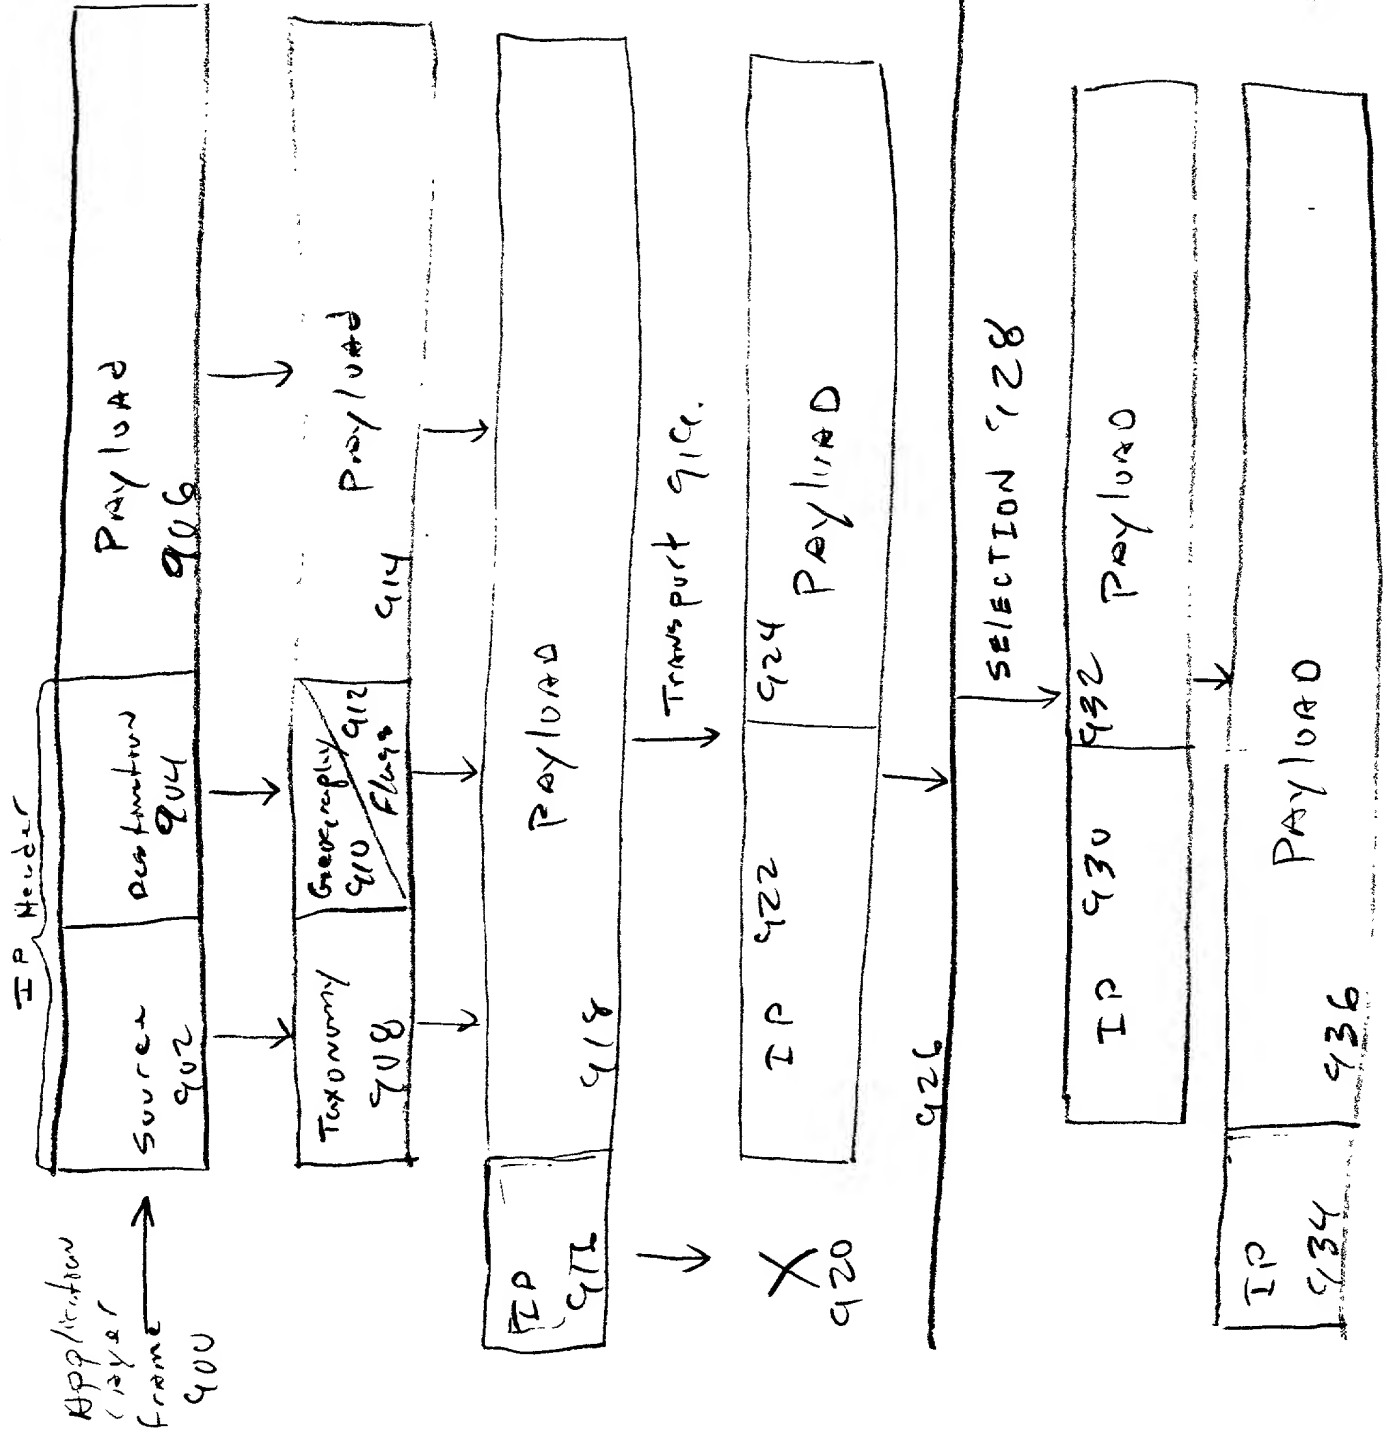 Application
Layer
frame
900
IP Header
Source
902
Destination
904
Payload
906
Taxonomy
908
Geography
910
912
Flags
914
Payload
IP
918
PAYLOAD
Transport 919.
X
920
IP 922
924
PAYLOAD
926
SELECTION 928
IP 930
932
PAYLOAD
IP
934
936
PAYLOAD